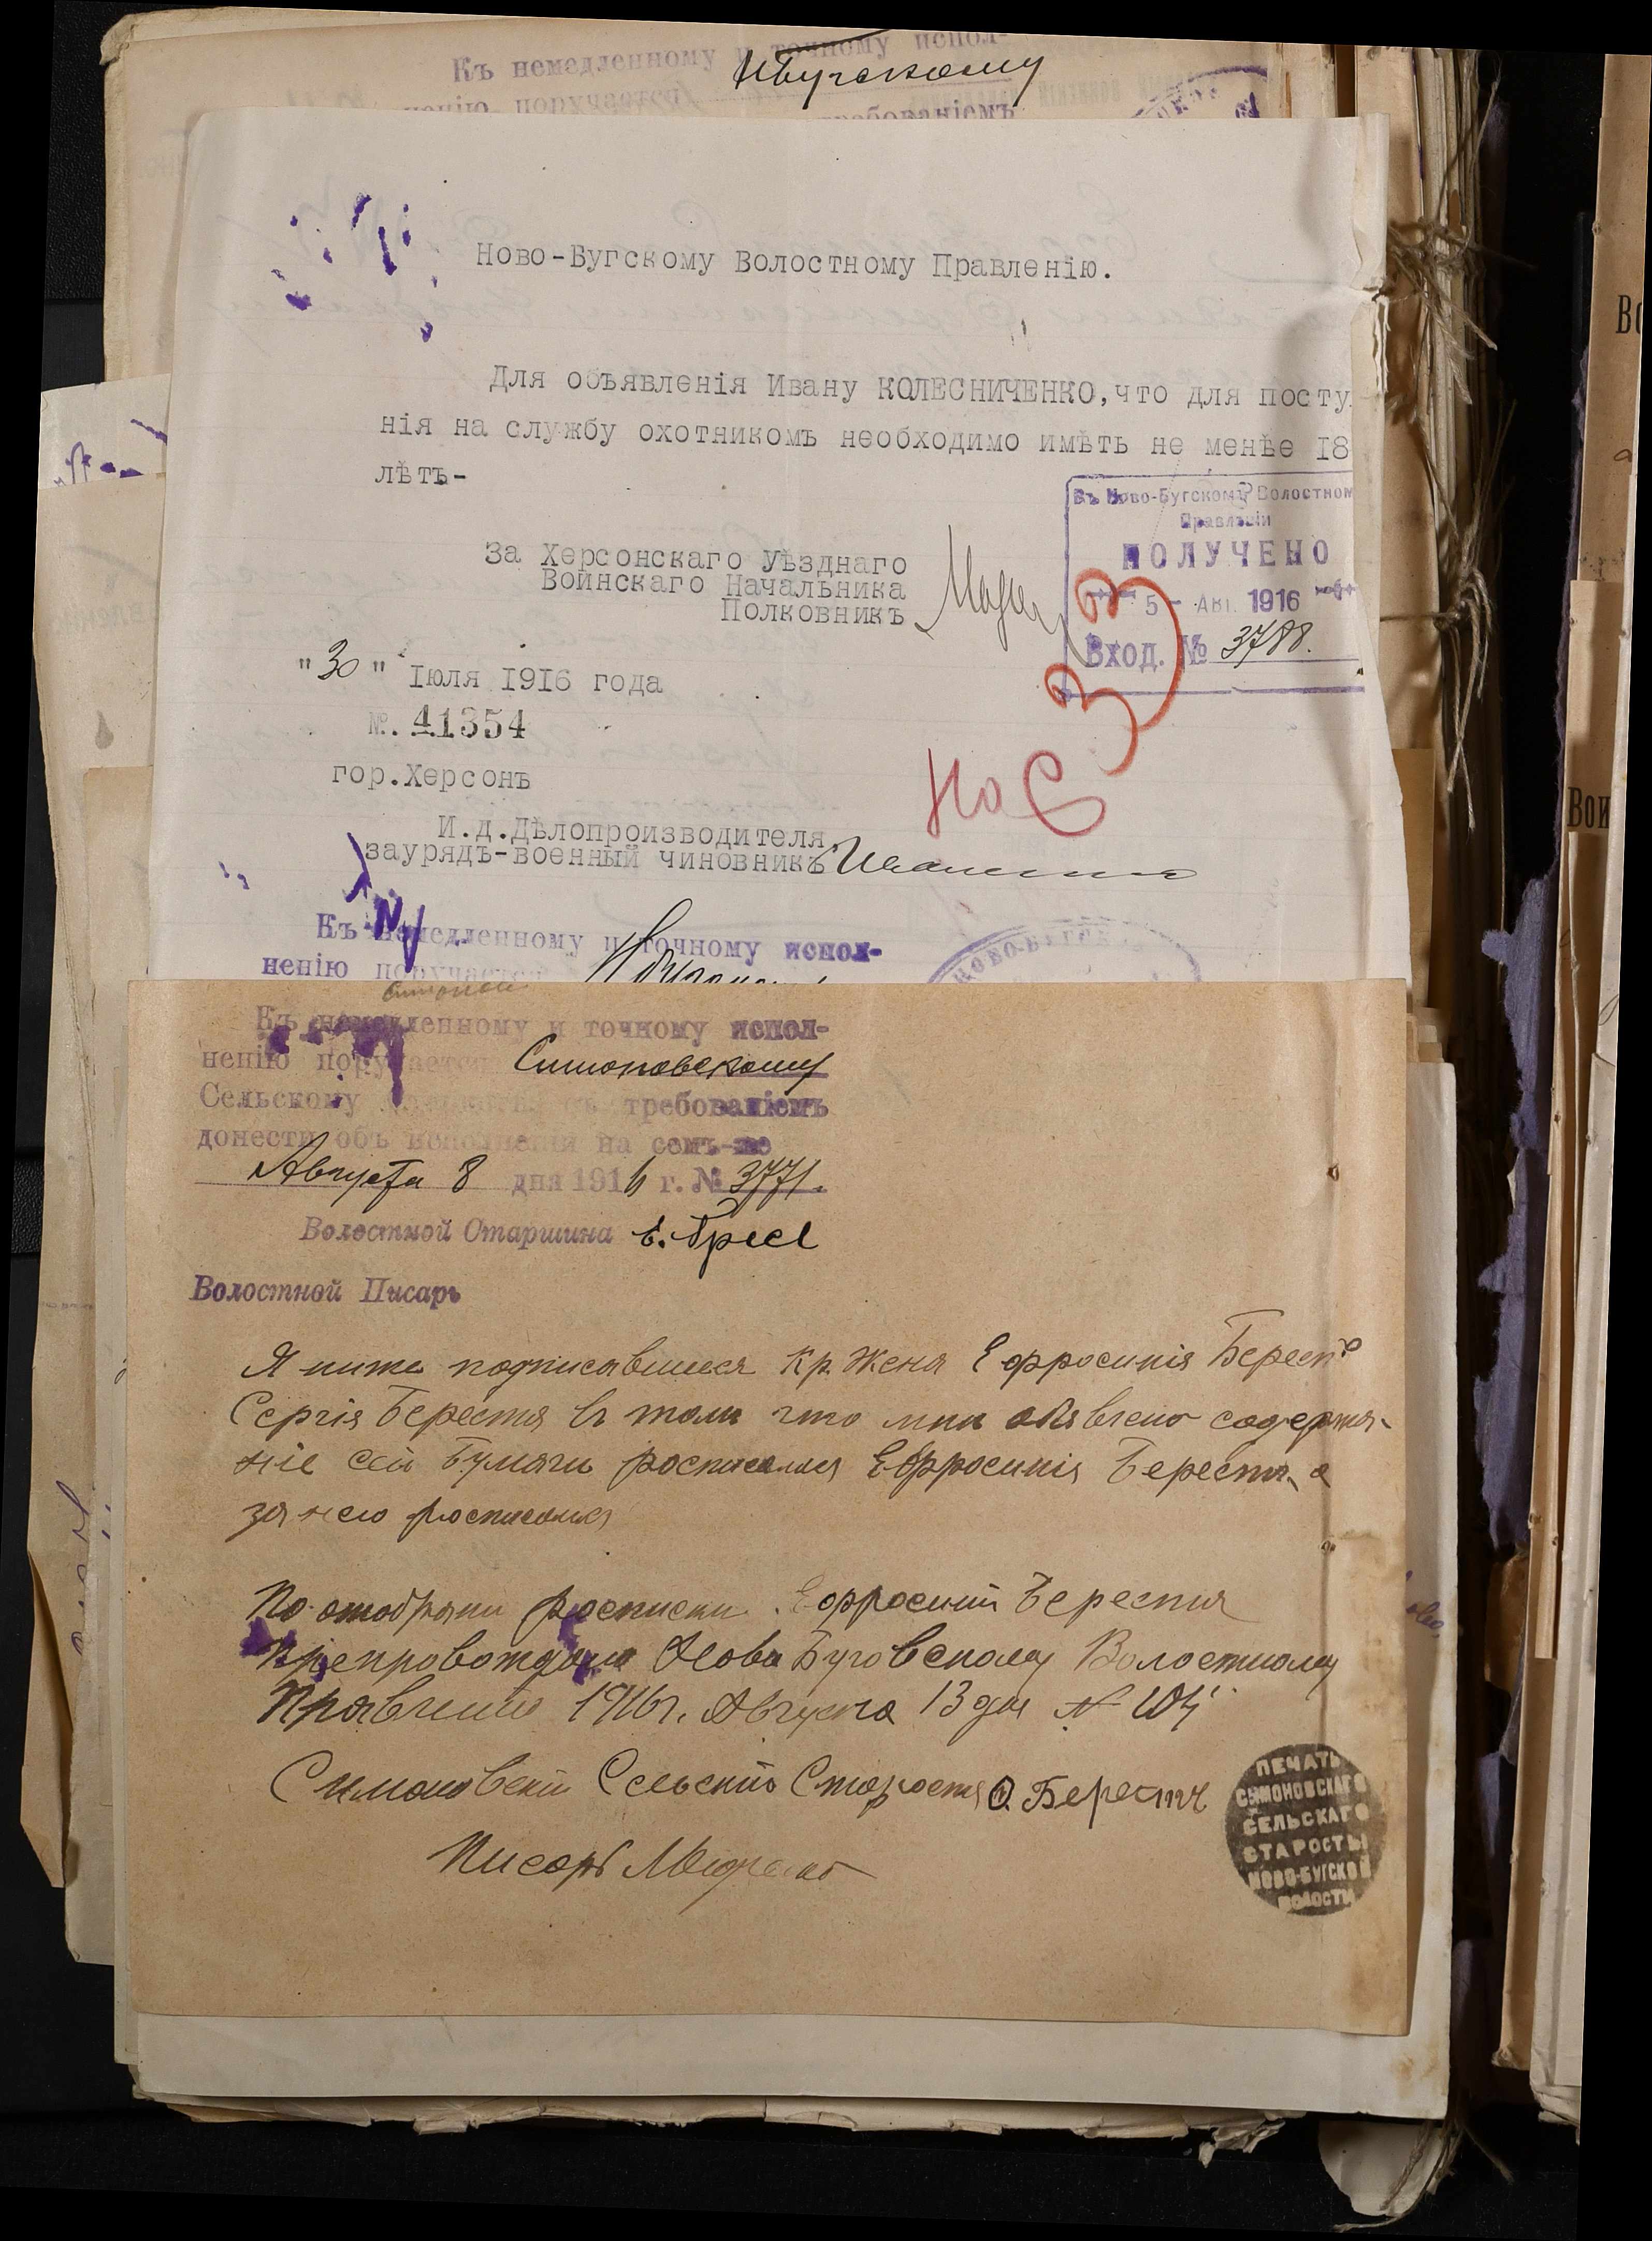 Къ немедленному и точному испол-
Нбугскому
ненію поручается
требованіемъ
Ново-Бугскому Волостному Правленію.
Для объявленія Ивану КОЛЕСНИЧЕНКО, что для посту
нія на службу охотникомъ необходимо имѣть не менѣе 18
лѣтъ-
Въ Ново-Бугскомъ Волостном
Правленіи
ПОЛУЧЕНО
5 - АВГ. 1916
Вход. № 3788.
За Херсонскаго Уѣзднаго
Воинскаго Начальника
Полковникъ
"30" Іюля 1916 года
№. 41354
гор.Херсонъ
На С
33
И.д.Дѣлопроизводителя
заурядъ-военный чиновникъ
Къ немедленному и точному испол-
ненію поручается
НОВО-БУГСК
Къ немедленному и точному испол-
ненію поручается Симоновскому
Сельскому съ требованіемъ
донести объ исполненіи на семъ-же
Августа 8 дня 1916 г. № 3771.
Волостной Старшина
Волостной Писарь
Я ниже подписавшися Кр. Жена Ефросинія Берест
Сергія Берестя въ томъ что мнѣ обявлено содержа-
ніе сей бумаги росписался Ефросинія Берестя, а
за нею росписался
По отобрани росписки Ефросиній Берестя
препровождаю Нова Буговскому Волостному
Правленію 1916 г. Августа 13 дня №
Симоновский Сельский Староста О. Берестъ
Писарь
ПЕЧАТЬ
СИМОНОВСКАГО
СЕЛЬСКАГО
СТАРОСТЫ
НОВО-БУГСКОЙ
ВОЛОСТИ
Во
Вои